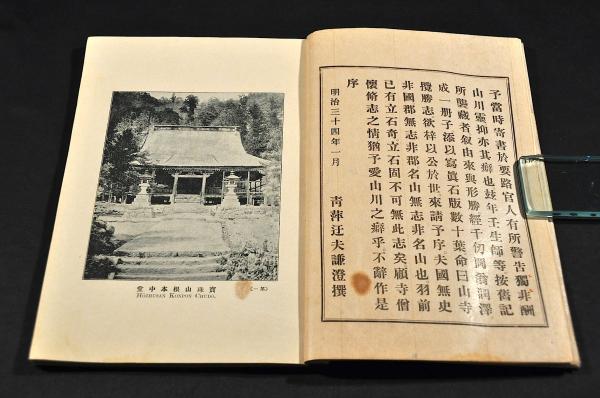 予當時寄書於要路官人有所警告獨非酬
山川靈抑亦其癖也玆年壬生師等按舊記
所襲藏者叙由來與形勝經千仞岡翁潤澤
成一册子添以寫眞石版數十葉命曰山寺
攬勝志欲梓以公於世來請予序夫國無史
非國郡無志非郡名山無志非名山也羽前
已有立石奇立石固不可無此志矣顧寺僧
懷脩志之情猶予愛山川之癖乎不辭作是
序
明治三十四年一月
青萍迂夫謙澄撰
寶珠山根本中堂
(第一)
HŌZHUSAN KONPON CHUDO.